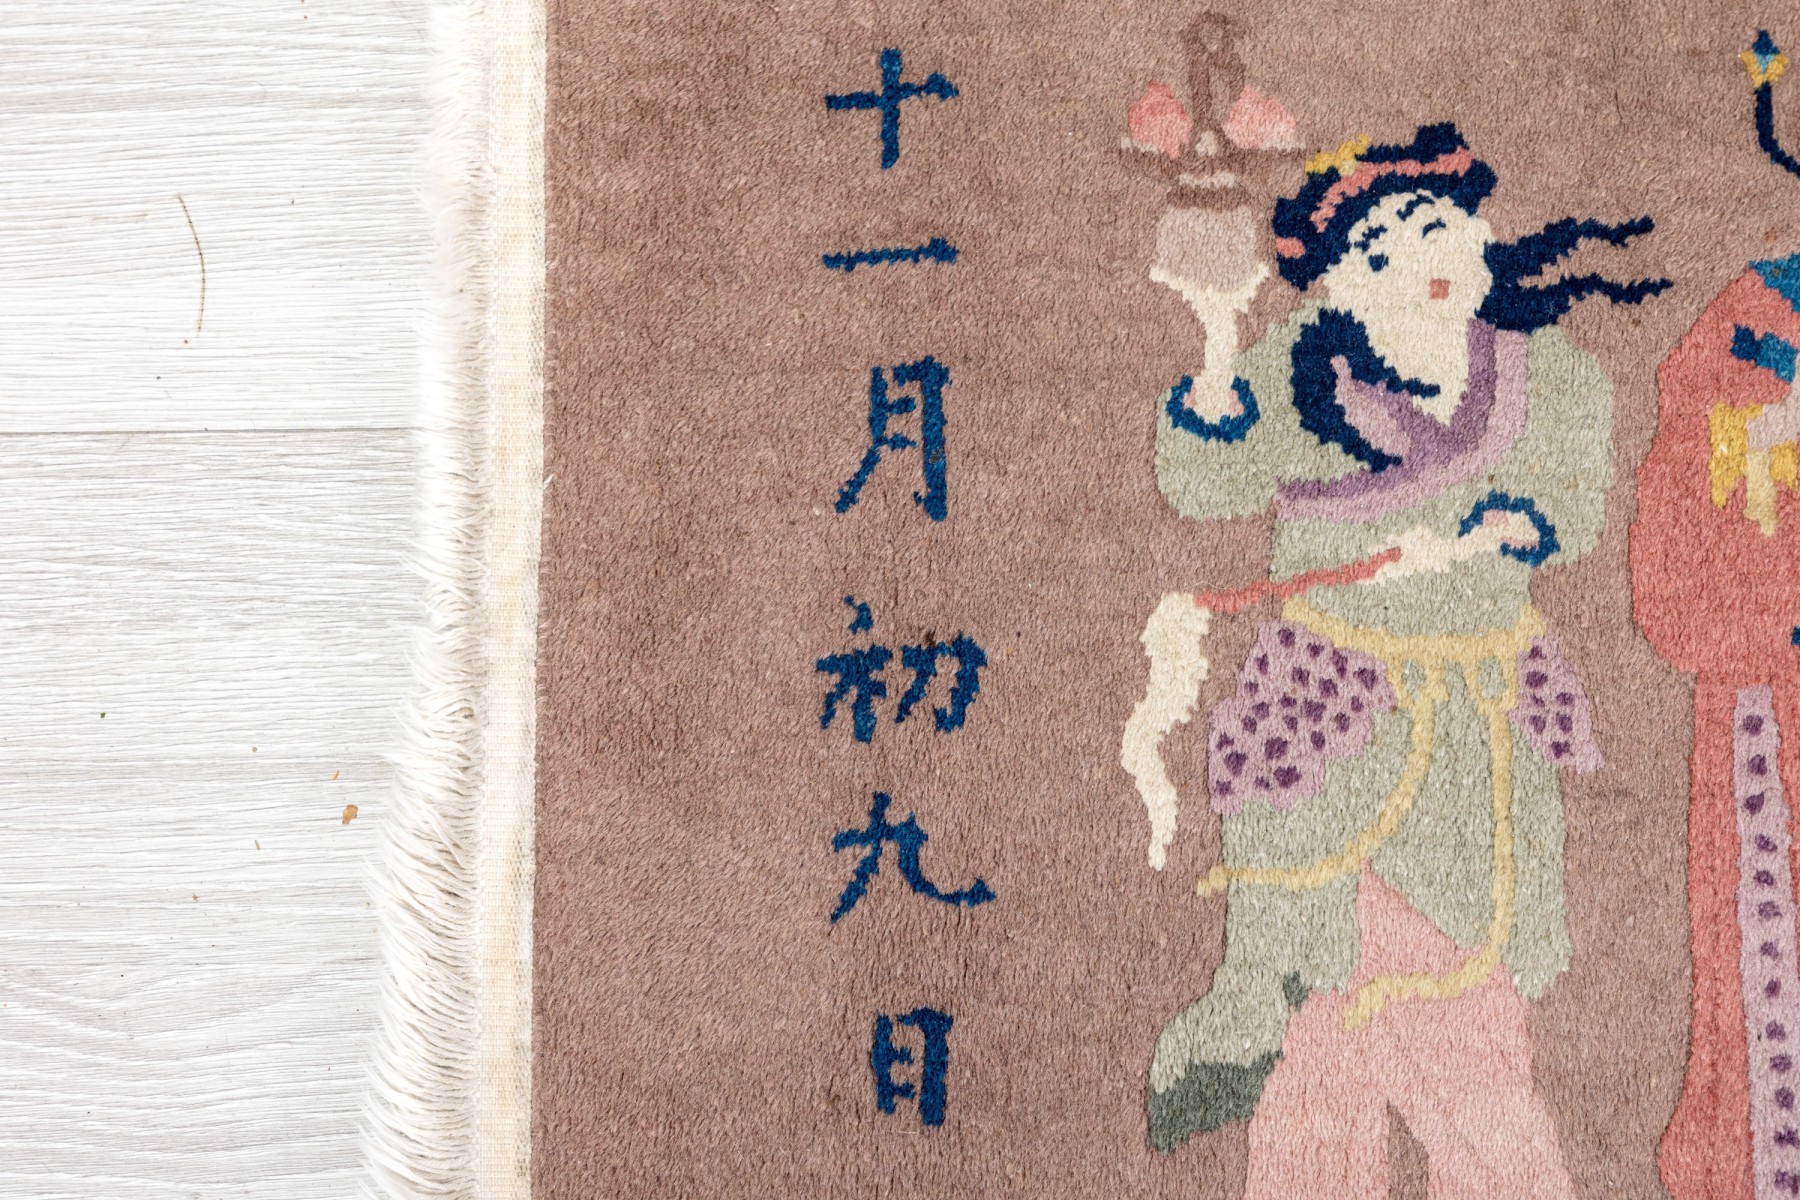 十一月初九日